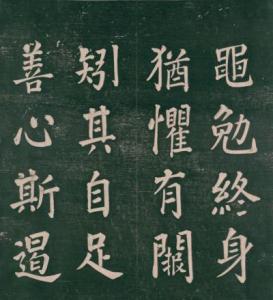 黽勉終身
猶懼有闕
矧其自足
善心斯遏